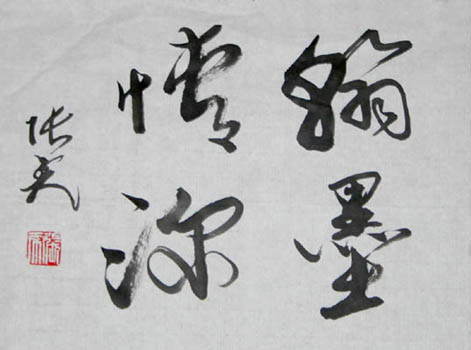 翰墨
情深
张